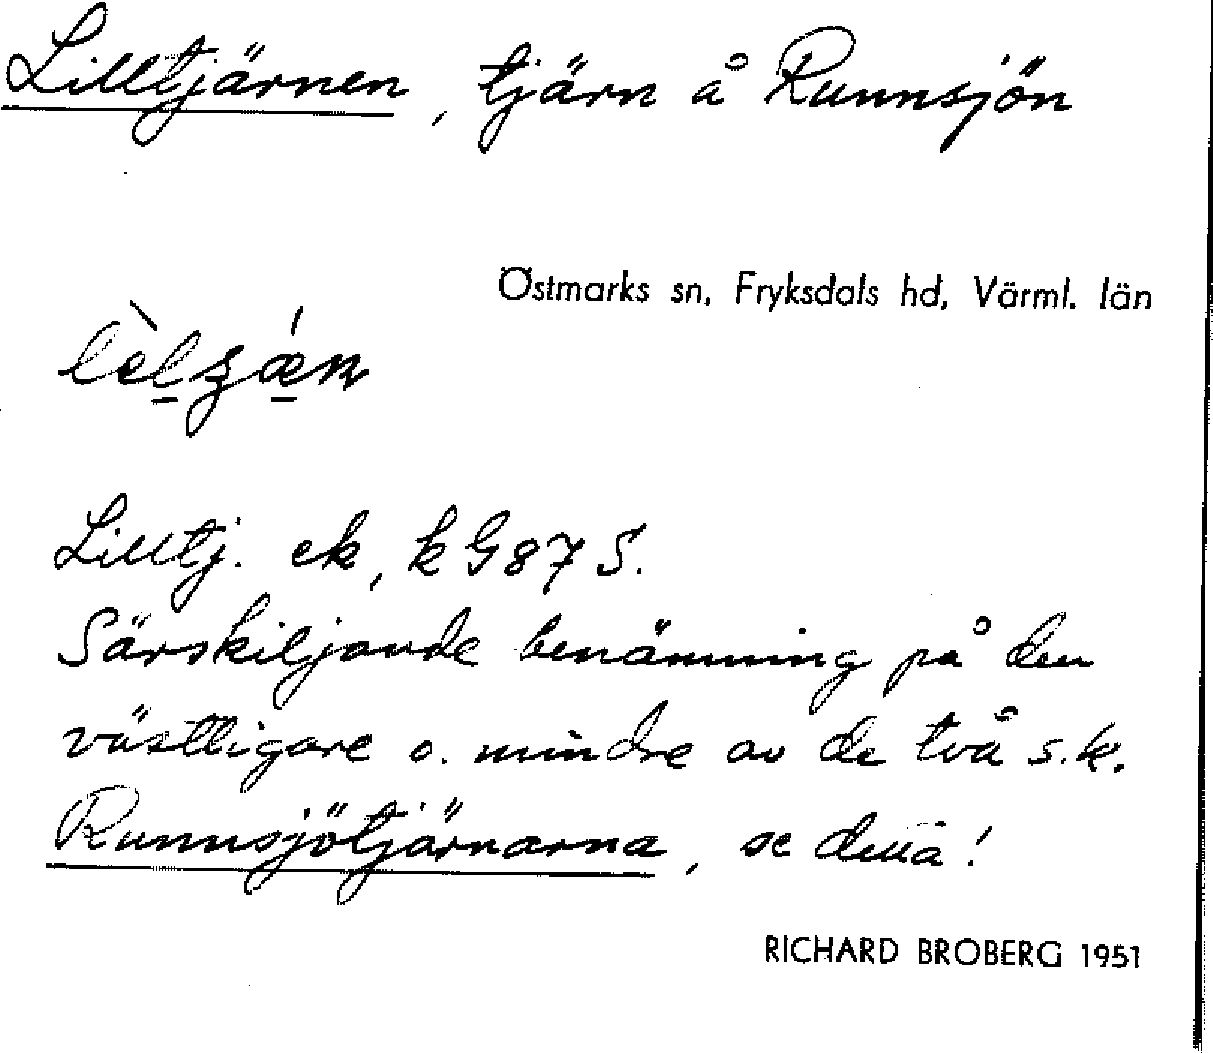 Lilltjärnen, tjärn å Runnsjön
Östmarks sn, Fryksdals hd, Värml. län
Lilltj. ek, k G 87 S.
Särskiljande benämning på den
västligare o. mindre av de två s.k.
Runnsjötjärnarna, se detta!
RICHARD BROBERG 1951